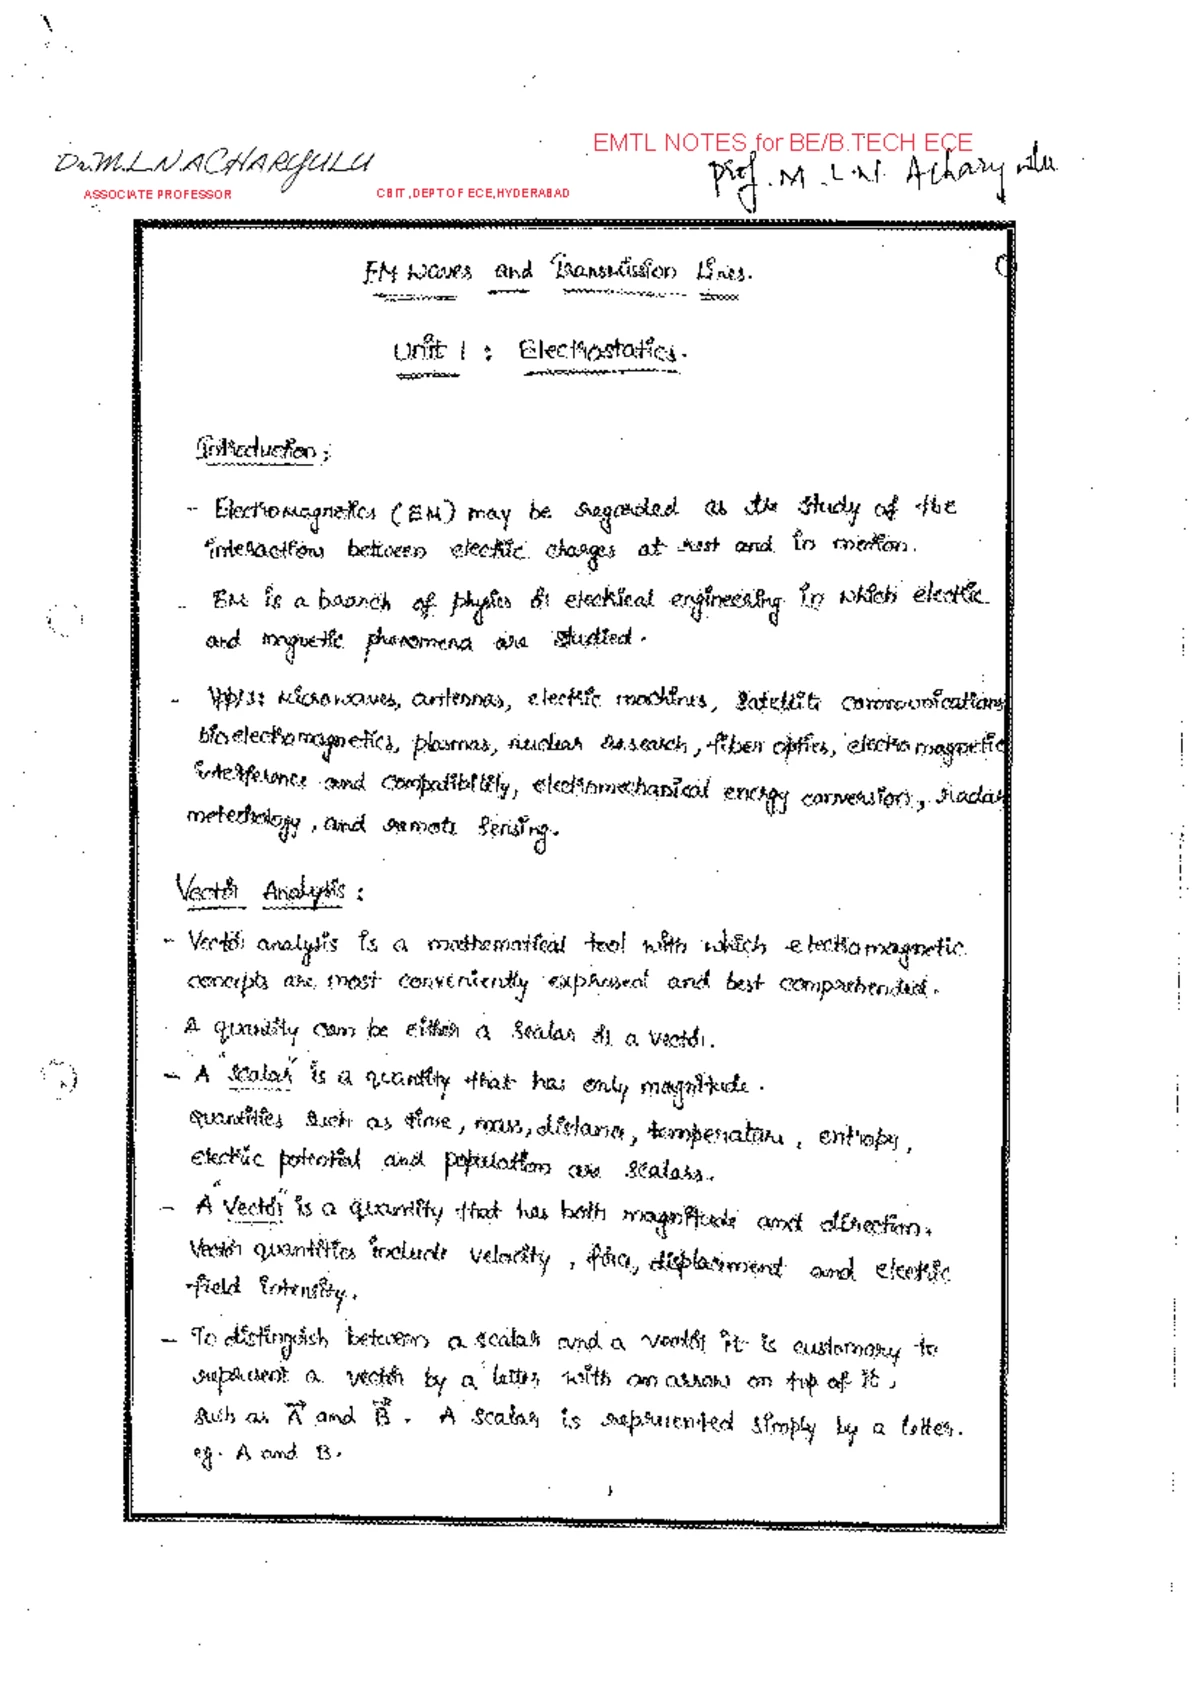 EMTL NOTES for BE/B.TECH ECE
Dr.M.L.N.ACHARYULU
Prof. M.L.N. Acharyulu
ASSOCIATE PROFESSOR CBIT,DEPT OF ECE,HYDERABAD
EM Waves and Transmission Lines.
Unit 1 : Electrostatics.
Introduction :
- Electromagnetics (EM) may be regarded as the study of the
interactions between electric charges at rest and in motion.
- EM is a branch of physics or electrical engineering in which electric
and magnetic phenomena are studied.
- App/s: Microwaves, antennas, electric machines, Satellite communications
bioelectromagnetics, plasmas, nuclear research, fiber optics, electromagnetic
interference and compatibility, electromechanical energy conversion, radar
meteorology, and remote sensing.
Vector Analysis :
- Vector analysis is a mathematical tool with which electromagnetic
concepts are most conveniently expressed and best comprehended.
A quantity can be either a scalar or a vector.
- A "scalar" is a quantity that has only magnitude.
quantities such as time, mass, distance, temperature, entropy,
electric potential and population are scalars.
- A "vector" is a quantity that has both magnitude and direction.
Vector quantities include velocity, force, displacement and electric
field intensity.
- To distinguish between a scalar and a vector it is customary to
represent a vector by a letter with an arrow on top of it,
such as A⃗ and B⃗. A scalar is represented simply by a letter.
eg. A and B.
1